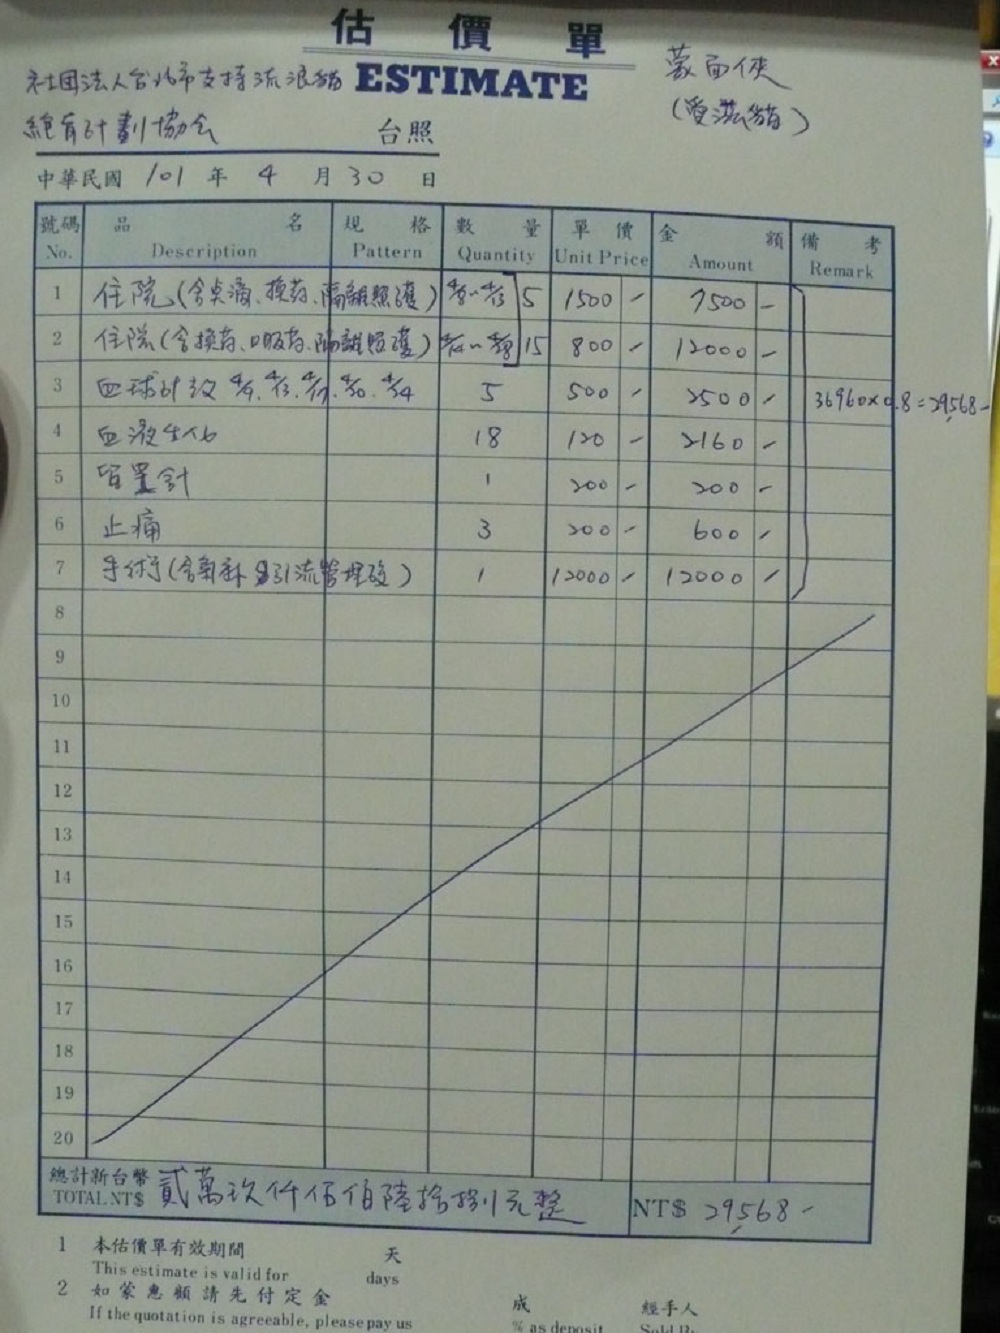 估價單
ESTIMATE
蒙面俠
(愛滋貓)
社團法人台北市支持流浪貓
絕育計劃協会
台照
中華民國 101 年 4 月 30 日
號碼 品名 規格 數量 單價 金額 備考
No. Description Pattern Quantity Unit Price Amount Remark
1 住院(含点滴、換药、隔離照護) 5 1500 - 7500 -
2 住院(含換药、口服药、隔離照護) 15 800 - 12000 -
3 血球計数 5 500 - 2500 - 36960×0.8=29,568-
4 血液生化 18 120 - 2160 -
5 留置針 1 200 - 200 -
6 止痛 3 200 - 600 -
7 手術(含 引流管 ) 1 12000 - 12000 -
8
9
10
11
12
13
14
15
16
17
18
19
20
總計新台幣 貳萬玖仟伍佰陸拾捌元整
TOTAL NT$ NT$ 29,568 -
1 本估價單有效期間 天
This estimate is valid for days
2 如蒙惠顧請先付定金 成 經手人
If the quotation is agreeable, please pay us % as deposit